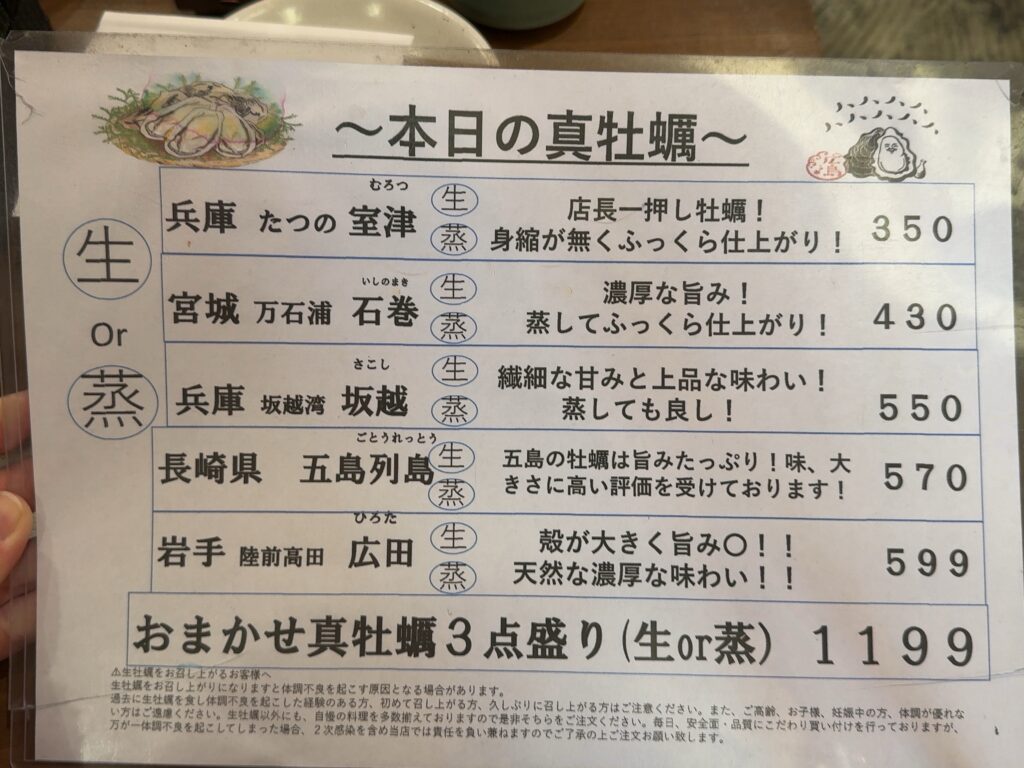 ～本日の真牡蠣～
生
Or
蒸
むろつ
兵庫 たつの 室津 生 蒸 店長一押し牡蠣！
身縮が無くふっくら仕上がり！ 350
いしのまき
宮城 万石浦 石巻 生 蒸 濃厚な旨み！
蒸してふっくら仕上がり！ 430
さこし
兵庫 坂越湾 坂越 生 蒸 繊細な甘みと上品な味わい！
蒸しても良し！ 550
ごとうれっとう
長崎県 五島列島 生 蒸 五島の牡蠣は旨みたっぷり！味、大
きさに高い評価を受けております！ 570
ひろた
岩手 陸前高田 広田 生 蒸 殻が大きく旨み〇！！
天然な濃厚な味わい！！ 599
おまかせ真牡蠣３点盛り(生or蒸) 1199
⚠生牡蠣をお召し上がるお客様へ
生牡蠣をお召し上がりになりますと体調不良を起こす原因となる場合があります。
過去に生牡蠣を食し体調不良を起こした経験のある方、初めて召し上がる方、久しぶりに召し上がる方はご注意ください。また、ご高齢、お子様、妊娠中の方、体調が優れな
い方はご遠慮ください。生牡蠣以外にも、自慢の料理を多数揃えておりますので是非そちらをご注文ください。毎日、安全面・品質にこだわり買い付けを行っておりますが、
万が一体調不良を起こしてしまった場合、２次感染を含め当店では責任を負い兼ねますのでご了承の上ご注文お願い致します。